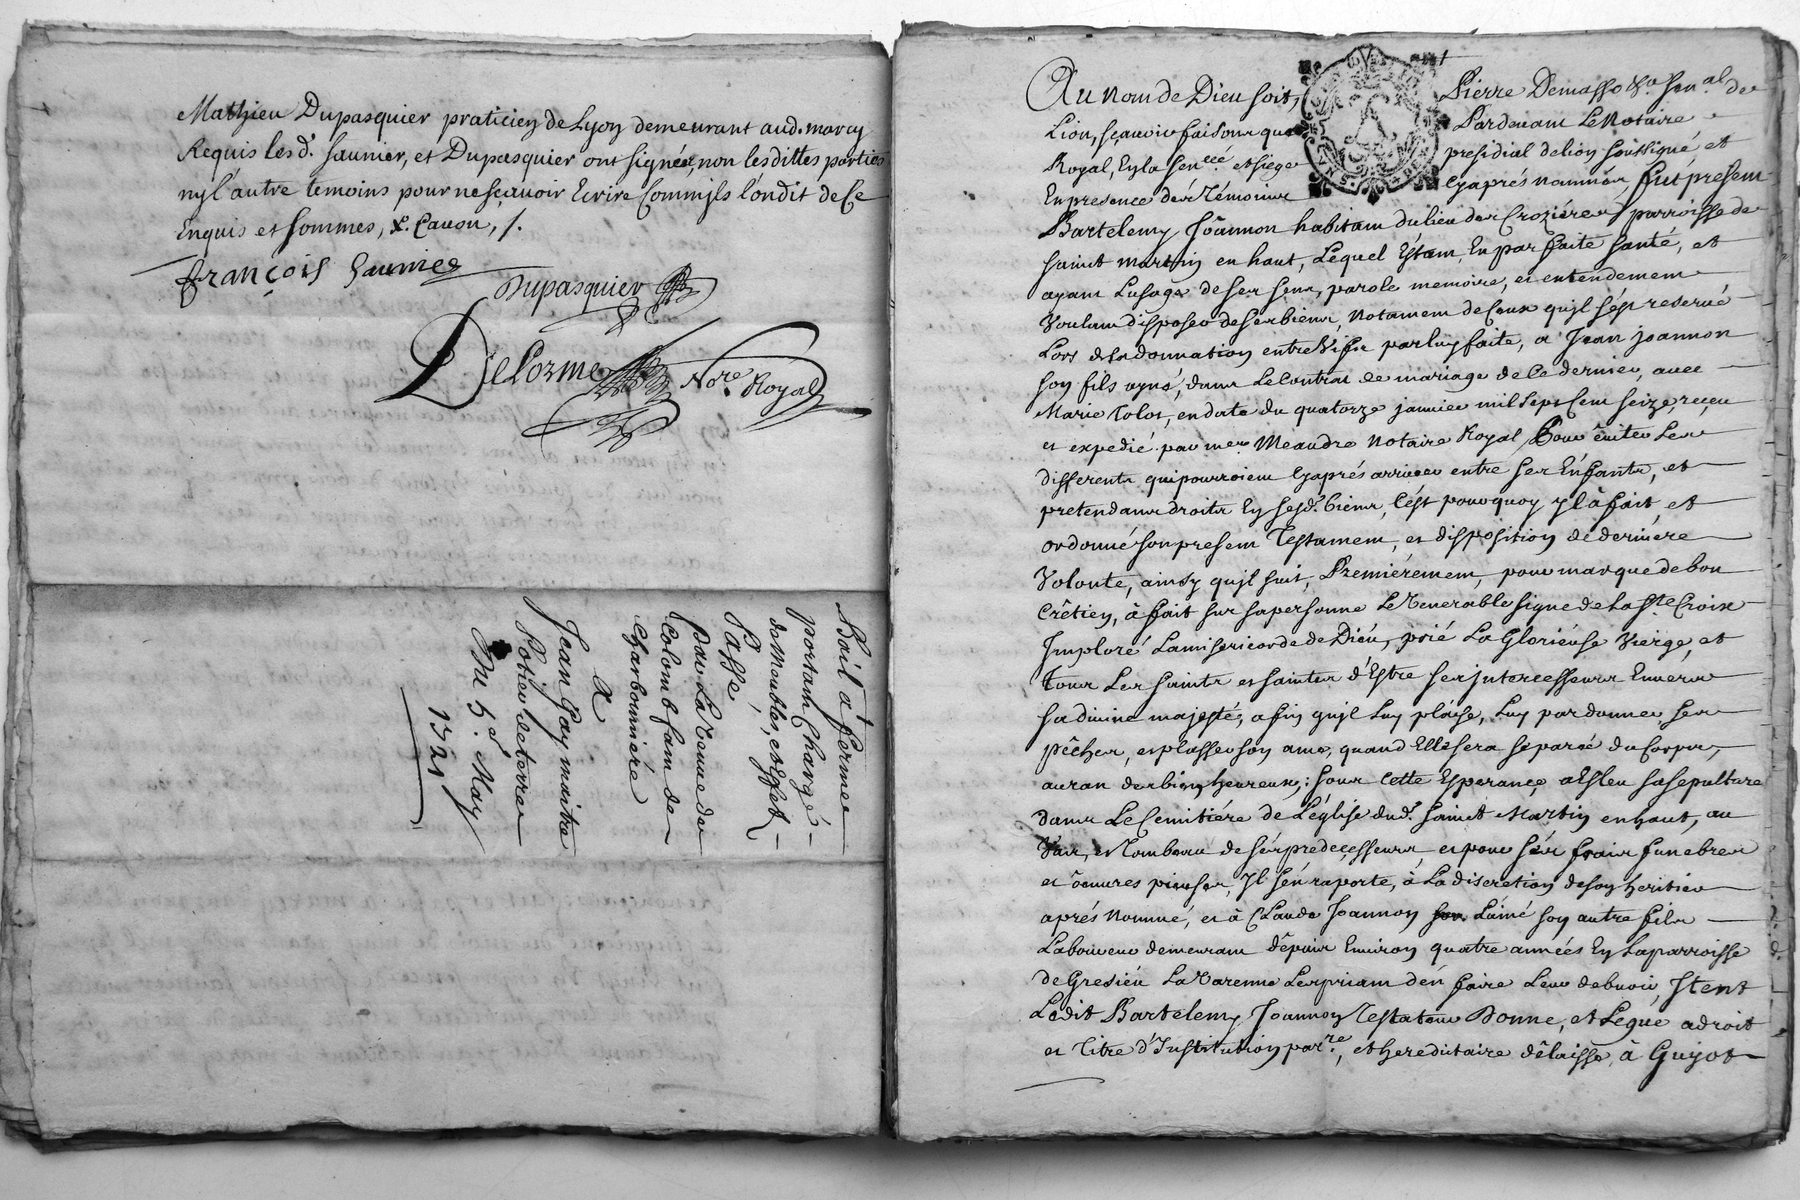 Mathieu Dupasquier praticien de Lyon demeurant aud. marcy
Requis les d. saunier, et Dupasquier ont signéz, non lesdittes parties
ny l'autre temoins pour ne sçavoir Ecrire Commjls l'ondit de Ce
Enquis et sommes,
françois Saunier
Dupasquier
DeLorme Nore. Royal
Bail a fermes
portant Chargé
de meubles, et effet
Passé,
Par La veuve de
Colomb fan de
Charbonniére
A
Jean Gay maitre
Potier de terre
Du 5e. May
1721
Au nom de Dieu soit, Pierre Demasso
Lion, sçavoir faisons que Pardevant Le Notaire
Royal, En la senecé. et siege presidial de lion soussigné et
En presence des Témoins Cyaprés nommés fut présent
Bartelemy Joannon habitant du lieu des Croziéres parroisse de
saint martin en haut, Lequel Estant, En parfaite santé, et
ayant L'usage de ses sens, parole memoire, et entendement
Voulant disposer de ses biens, Notament de Ceux qu'jl s'est reservé
Lors de la donnation entre Vifs par luy faite, a Jean joannon
son fils ayné, dans Le Contrat de mariage de Ce dernier, avec
Marie Tolot, en date du quatorze janvier mil sept Cent seize, reçeu
et expedié par me. Meaudre Notaire Royal, Pour éviter Les
differents qui pourroient Cyaprés arriver entre ses Enfants, et
pretendants droits En sesd. biens, C'est pourquoy yl à fait, et
ordonné son present Testament, et disposition de derniére
Volonte, ainsy qu'jl suit, Premiérement, pour marque de bon
Crêtien, à fait sur sa personne Le Venerable signe de la Ste. Croix
Imploré La misericorde de Diéu, prié La Gloriéuse Vierge, et
tous Les saints et saintes d'Estre ses jntercesseurs Envers
sa divine majesté, afin qu'jl Luy plaise, Luy pardonner ses
pêches, et placer son ame, quand Elle sera separée du Corps,
au ran des bien heureux; sous Cette Esperance a Esleu sa sepulture
dans Le Cemitiére de L'église dud. saint Martin en haut, au
Vas, et Tombeau de sés predecesseurs et pour sés frais funebres
et oeuvres pieuses, Yl s'en raporte, à La discretion de son heritier
aprés nommé, et à Claude Joannon Lainé son autre fils
Laboureur demeurant dépuis Environ quatre années En La parroisse
de Gresieu La Varenne Les priant d'en faire Leur debvoir, Item
Ledit Bartelemy Joannon Testateur Donne, et Legue a droit
et Titre d'Institution parre., et hereditaire délaisse, à Guyot